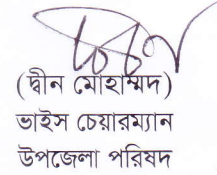 (দ্বীন মোহাম্মদ)
ভাইস চেয়ারম্যান
উপজেলা পরিষদ